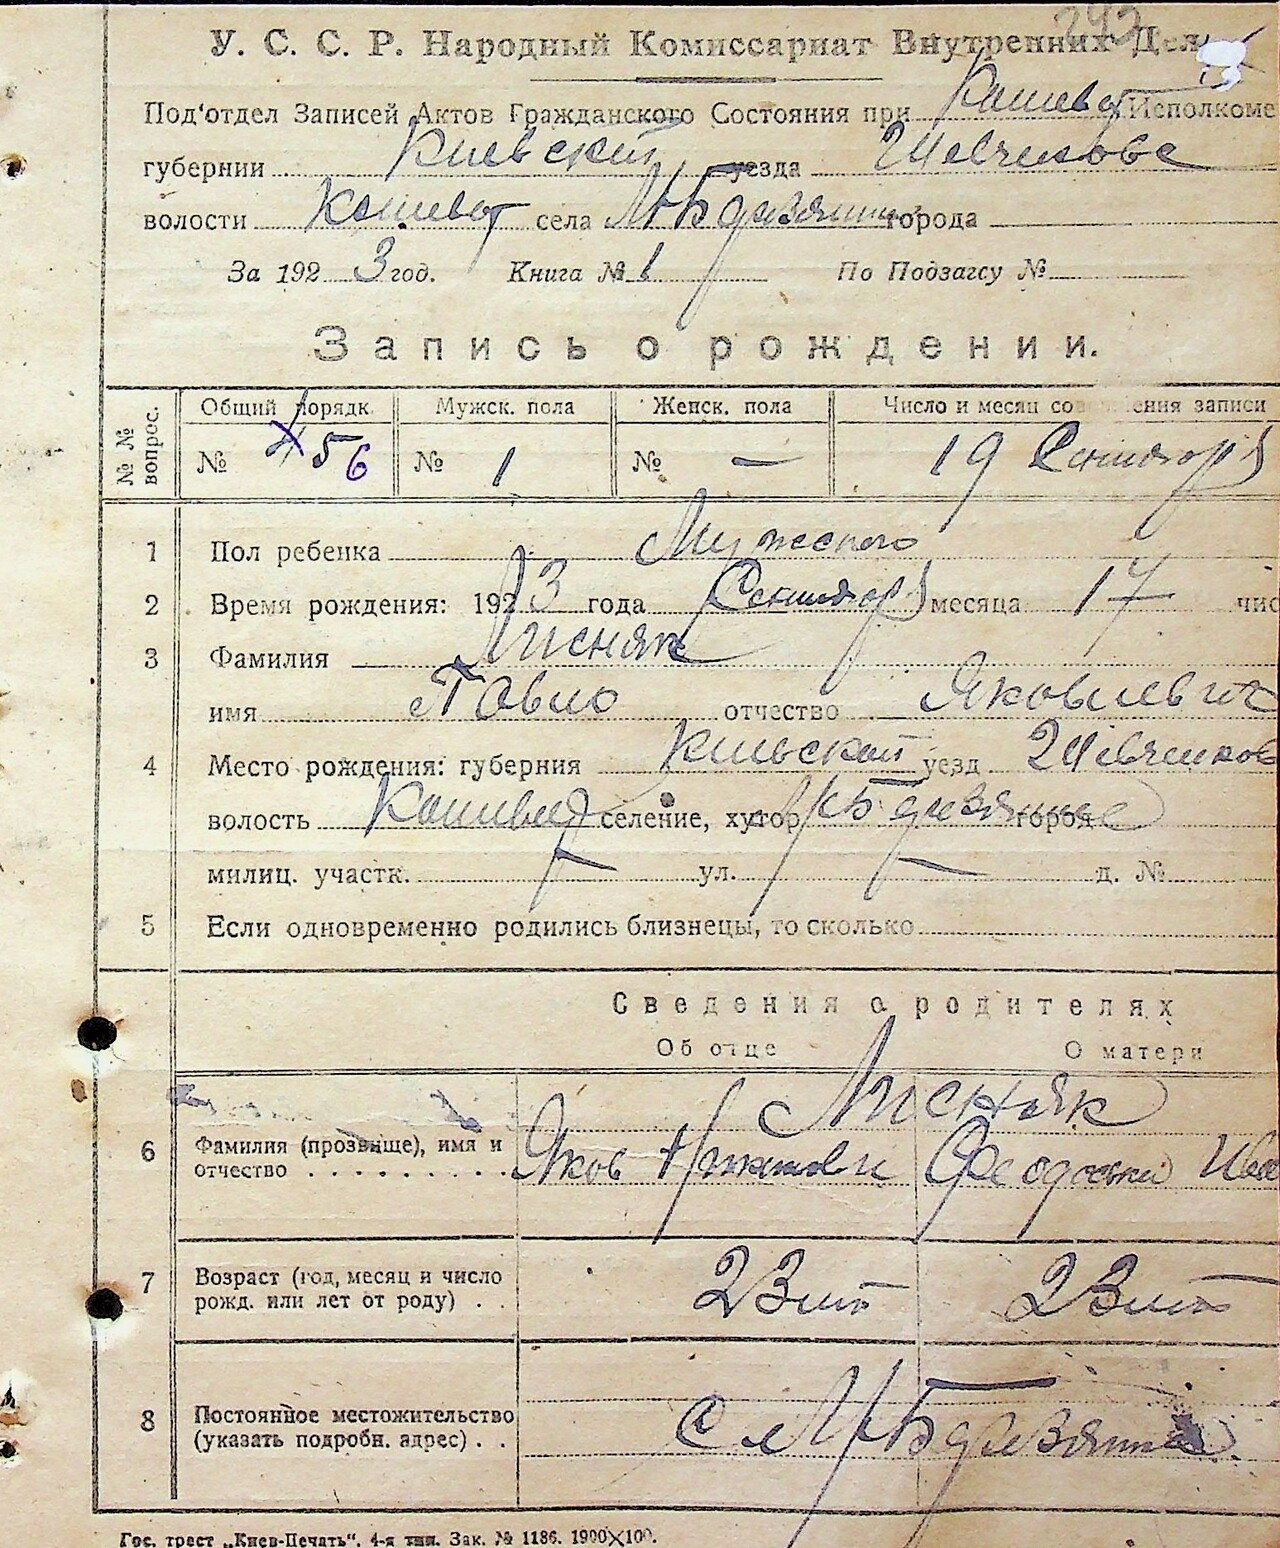 242
У. С. С. Р. Народный Комиссариат Внутренних Дел
Под'отдел Записей Актов Гражданского Состояния при Кошеват Исполкоме
губернии Киевской уезда Шевченкове
волости Кошеват села города
За 1923 год. Книга № 1 По Подзагсу №
Запись о рождении.
№№ вопрос. Общий порядк. Мужск. пола Женск. пола Число и месяц совершения записи
№ 456 № 1 № — 19 Сентября
1 Пол ребенка Мужеского
2 Время рождения: 1923 года Сентября месяца 17 чис
3 Фамилия Лисняк
имя Павло отчество Яковлевич
4 Место рождения: губерния Киевской уезд Шевченков
волость селение, хутор город
милиц. участк. — ул. — д. №
5 Если одновременно родились близнецы, то сколько
Сведения о родителях
Об отце О матери
Лисняк
6 Фамилия (прозвище), имя и
отчество . . . . . . . . . Яков Феодосия Ива
7 Возраст (год, месяц и число
рожд. или лет от роду) . . 23 лет 23 лет
8 Постоянное местожительство
(указать подробн. адрес) . . с
Гос. трест „Киев-Печать“. 4-я тип. Зак. № 1186. 1900×100.